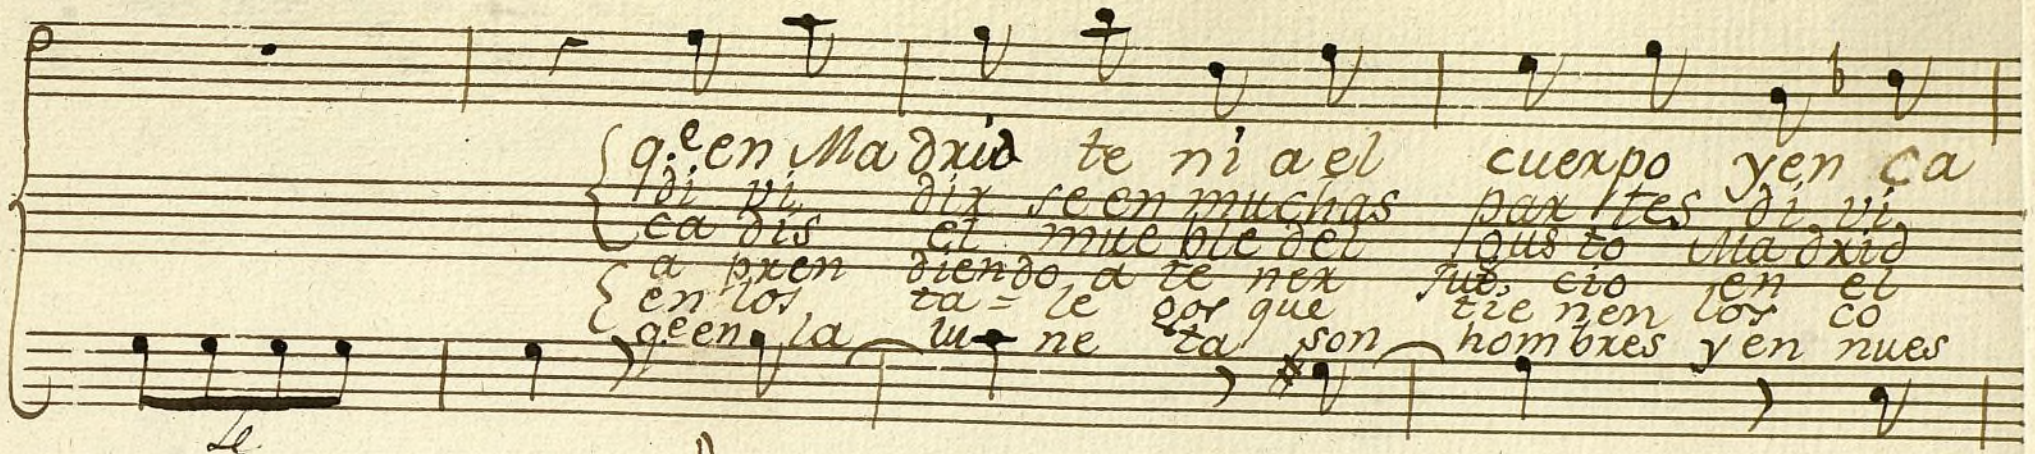 q.e en Madrid te ni a el cuerpo y en ca
di vi dir se en muchas par tes di vi
ca dis el mue ble del gus to Madrid
a pren diendo a te ner jui cio en el
en los ta = le gos que tie nen los co
qe en la lu ne ta son hombres y en nues